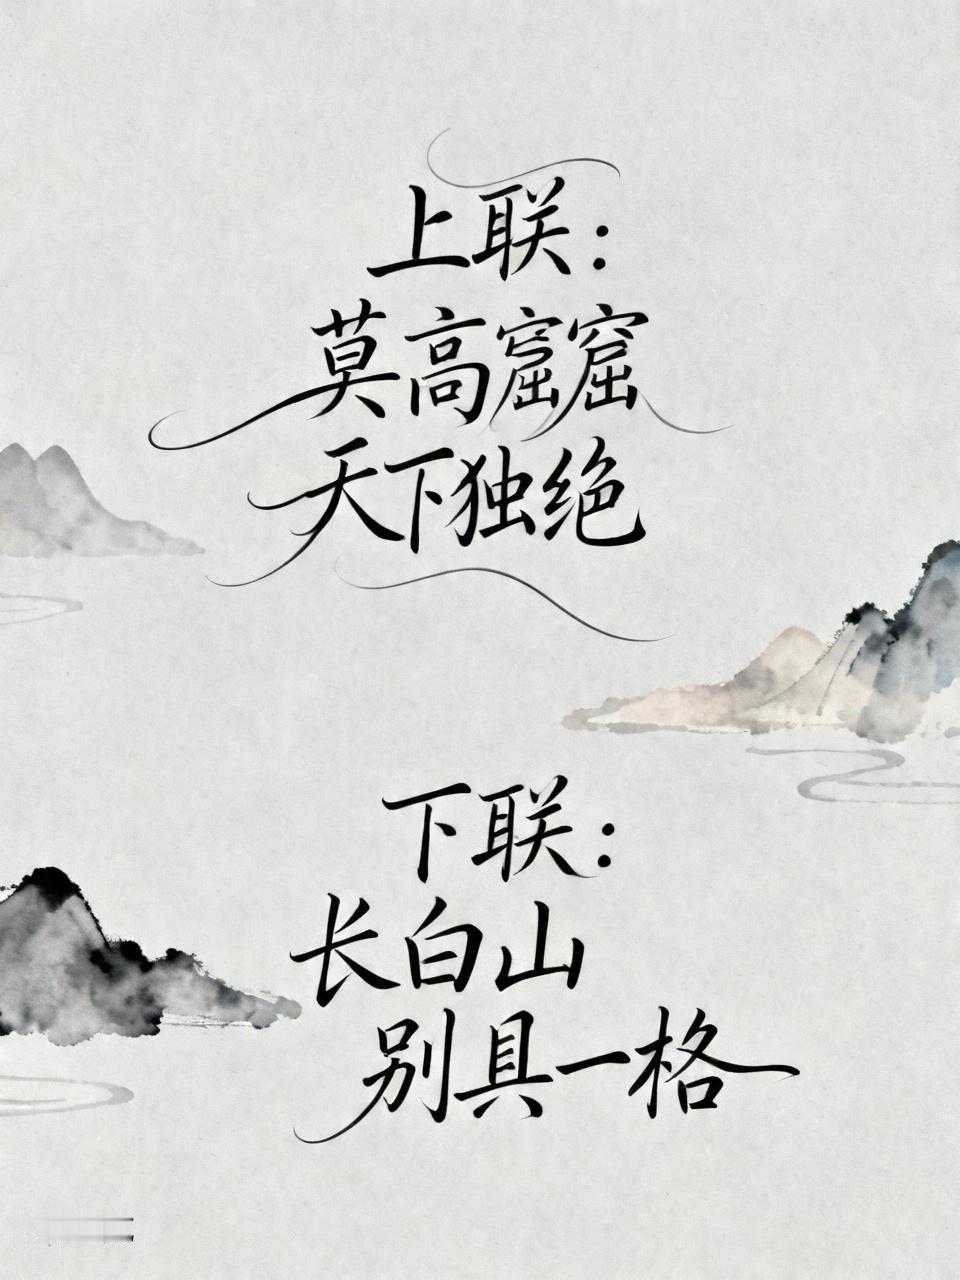 上联：
莫高窟窟
天下独绝
下联：
长白山
别具一格